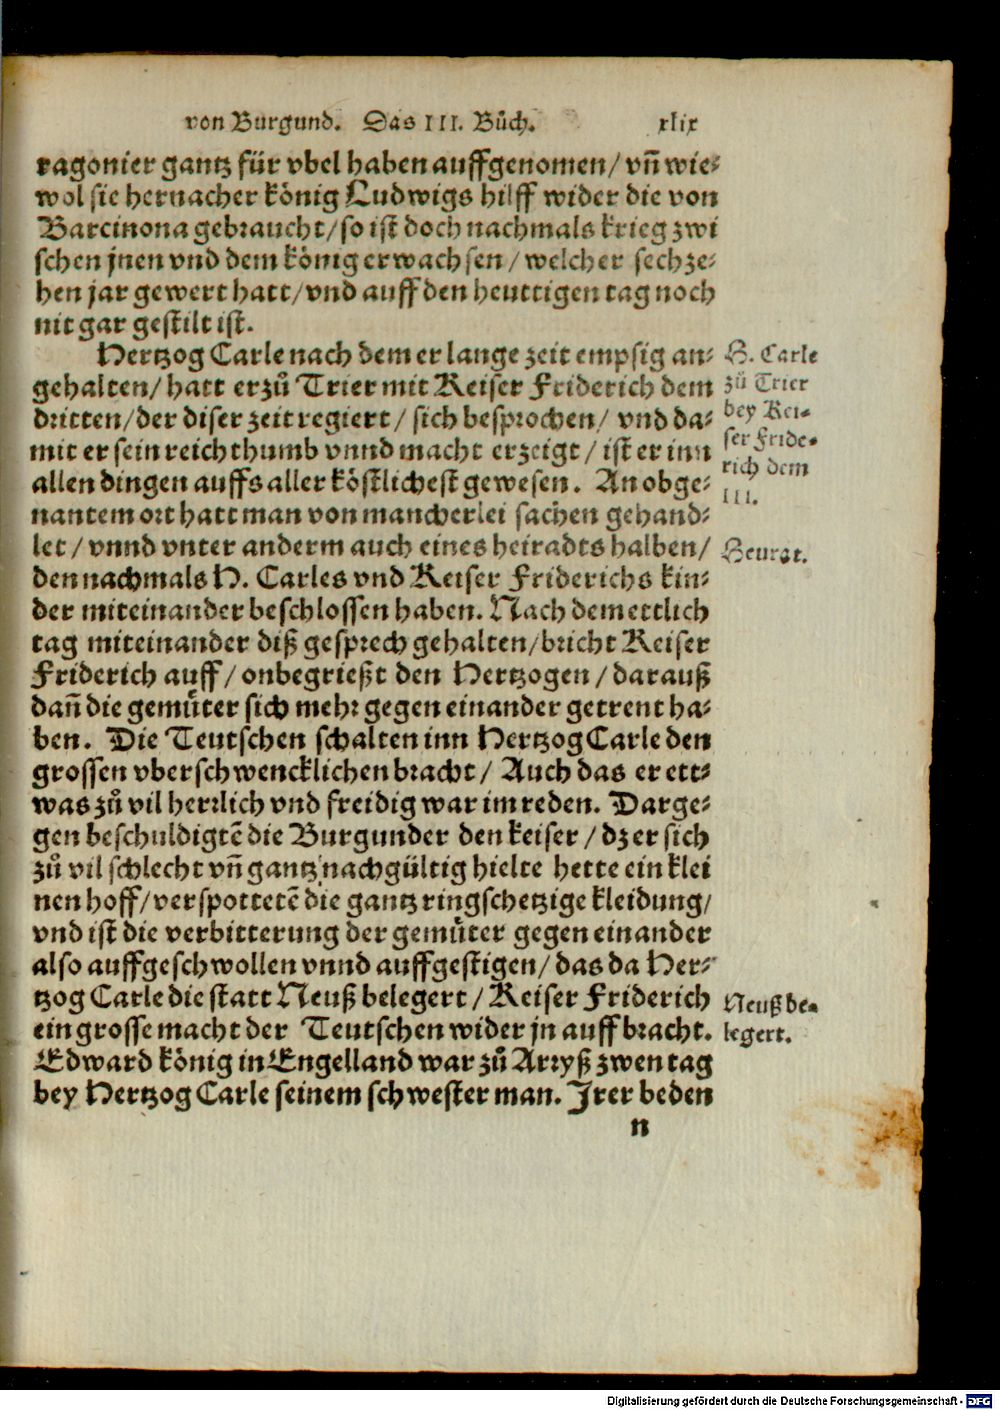 von Burgund. Das III. Bůch. xlix
ragonier gantz für vbel haben auffgenomen/ vñ wie⸗
wol sie hernacher könig Ludwigs hilff wider die von
Barcinona gebraucht/ so ist doch nachmals krieg zwi
schen jnen vnd dem könig erwachsen/ welcher sechze⸗
hen jar gewert hatt/ vnd auff den heuttigen tag noch
nit gar gestilt ist.
Hertzog Carle nach dem er lange zeit empsig an⸗
gehalten/ hatt er zů Trier mit Keiser Friderich dem
dritten/ der diser zeit regiert/ sich besprochen/ vnd da⸗
mit er sein reichthumb vnnd macht erzeigt/ ist er inn
allen dingen auffs aller köstlichest gewesen. An obge⸗
nantem ort hatt man von mancherlei sachen gehand⸗
let/ vnnd vnter anderm auch eines heiradts halben/
den nachmals H. Carles vnd Keiser Friderichs kin⸗
der miteinander beschlossen haben. Nach dem ettlich
tag miteinander diß gesprech gehalten/ bricht Keiser
Friderich auff/ onbegrießt den Hertzogen/ darauß
dañ die gemůter sich mehr gegen einander getrent ha⸗
ben. Die Teutschen schalten inn Hertzog Carle den
grossen vberschwencklichen bracht/ Auch das er ett⸗
was zů vil herrlich vnd freidig war im reden. Darge⸗
gen beschuldigtē die Burgunder den keiser/ dz er sich
zů vil schlecht vñ gantz nachgültig hielte hette ein klei
nen hoff/ verspottetē die gantz ringschetzige kleidung/
vnd ist die verbitterung der gemůter gegen einander
also auffgeschwollen vnnd auffgestigen/ das da Her⸗
tzog Carle die statt Neuß belegert/ Keiser Friderich
ein grosse macht der Teutschen wider jn auffbracht.
Edward könig in Engelland war zů Arryß zwen tag
bey Hertzog Carle seinem schwester man. Jrer beden
n
H. Carle
zů Trier
bey Kei⸗
ser Fride⸗
rich dem
III.
Heurat.
Neuß be⸗
legert.
Digitalisierung gefördert durch die Deutsche Forschungsgemeinschaft - DFG